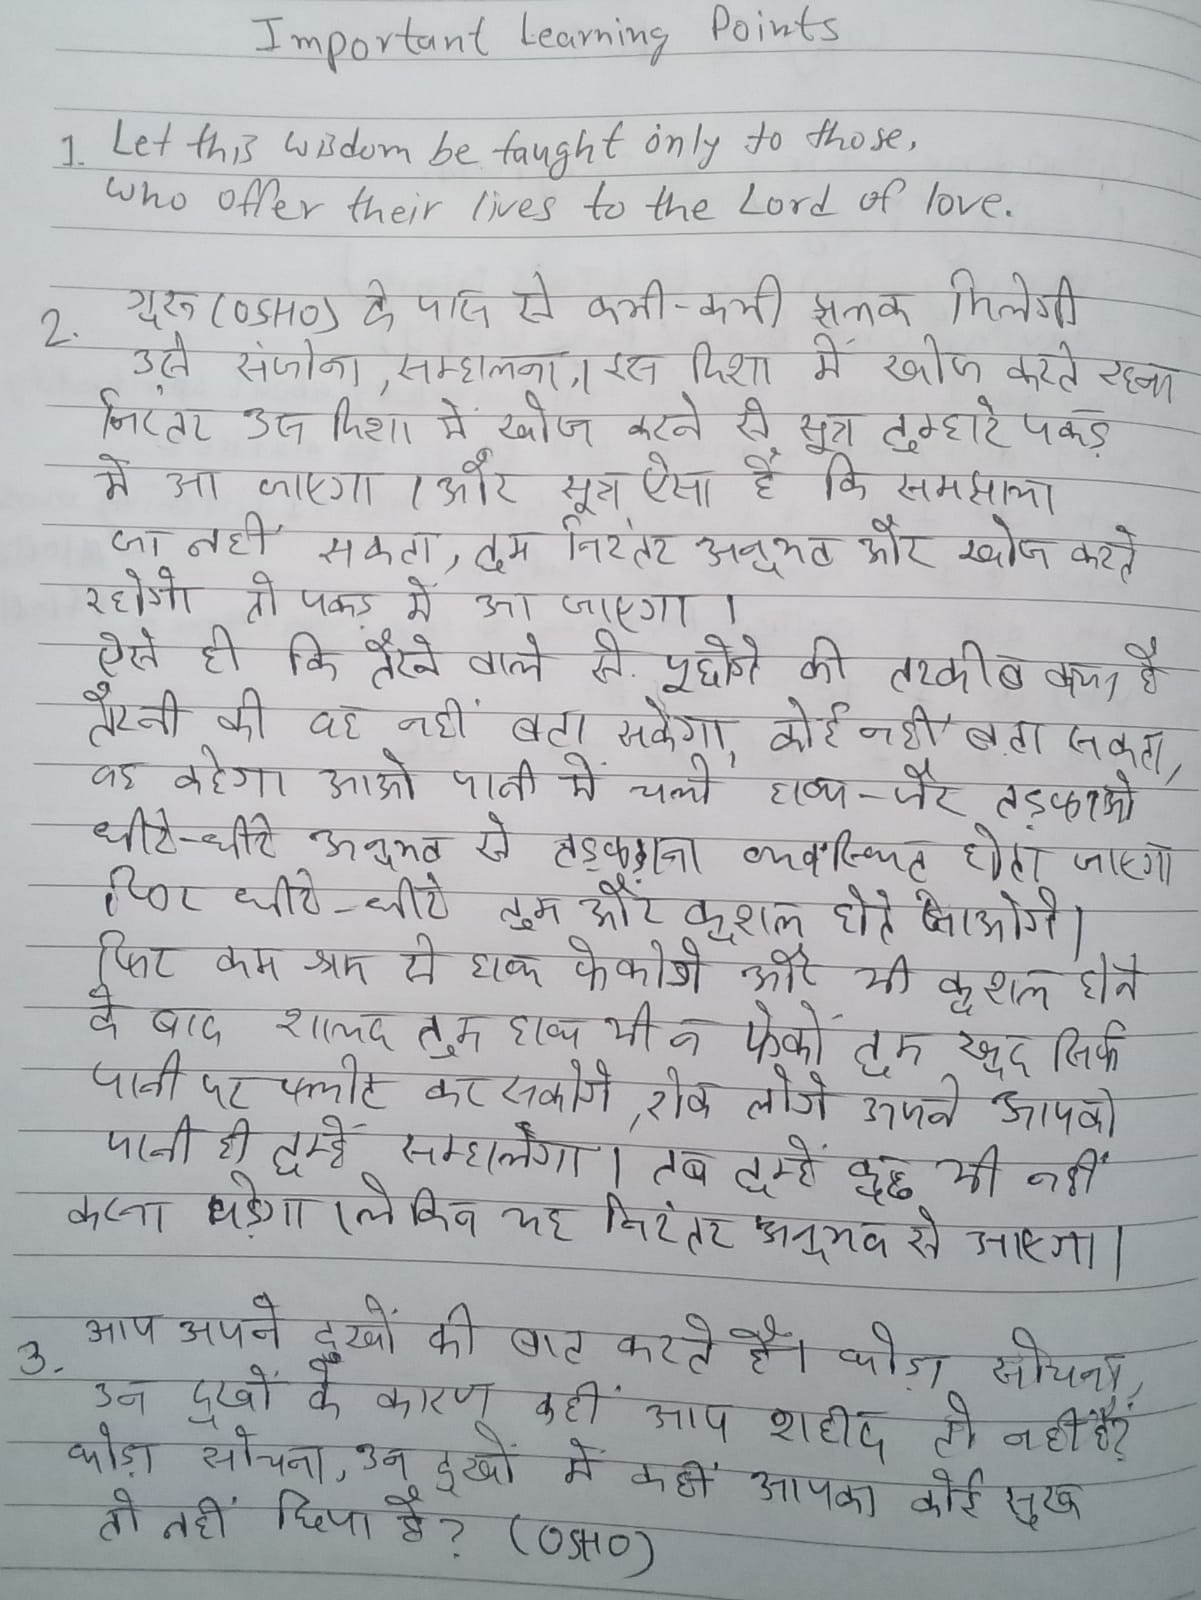 Important Learning Points
1. Let this wisdom be taught only to those,
who offer their lives to the Lord of love.
2. गुरू (OSHO) के पास से कभी-कभी झलक मिलेगी
उसे संजोना, सम्हालना, । इस दिशा में खोज करते रहना
निरंतर उस दिशा में खोज करने से सूत्र तुम्हारे पकड़
में आ जाएगा । और सूत्र ऐसा है कि समझाया
जा नहीं सकता, तुम निरंतर अनुभव और खोज करते
रहोगे तो पकड़ में आ जाएगा ।
ऐसे ही कि तैरने वाले से पूछोगे की तरकीब क्या है
तैरनी की वह नहीं बता सकेगा, कोई नहीं बता सकता,
वह कहेगा आओ पानी में चलो हाथ-पैर तड़फाओ
धीरे-धीरे अनुभव से तड़फड़ाना व्यवस्थित होता जाएगा
फिर धीरे-धीरे तुम और कुशल होते जाओगे।
फिर कम श्रम से हाथ फेकोगे और भी कुशल होने
के बाद शायद तुम हाथ भी न फेकों तुम खुद सिर्फ
पानी पर फ्लोट कर सकोगे, रोक लोगे अपने आपको
पानी ही तुम्हें सम्हालेगा । तब तुम्हें कुछ भी नहीं
करना पड़ेगा । लेकिन यह निरंतर अनुभव से आएगा ।
3. आप अपने दुखों की बात करते है। थोड़ा सोचना,
उन दुखों के कारण कहीं आप शहीद तो नहीं है?
थोड़ा सोचना, उन दुखों में कहीं आपका कोई सुख
तो नहीं छिपा है? (OSHO)